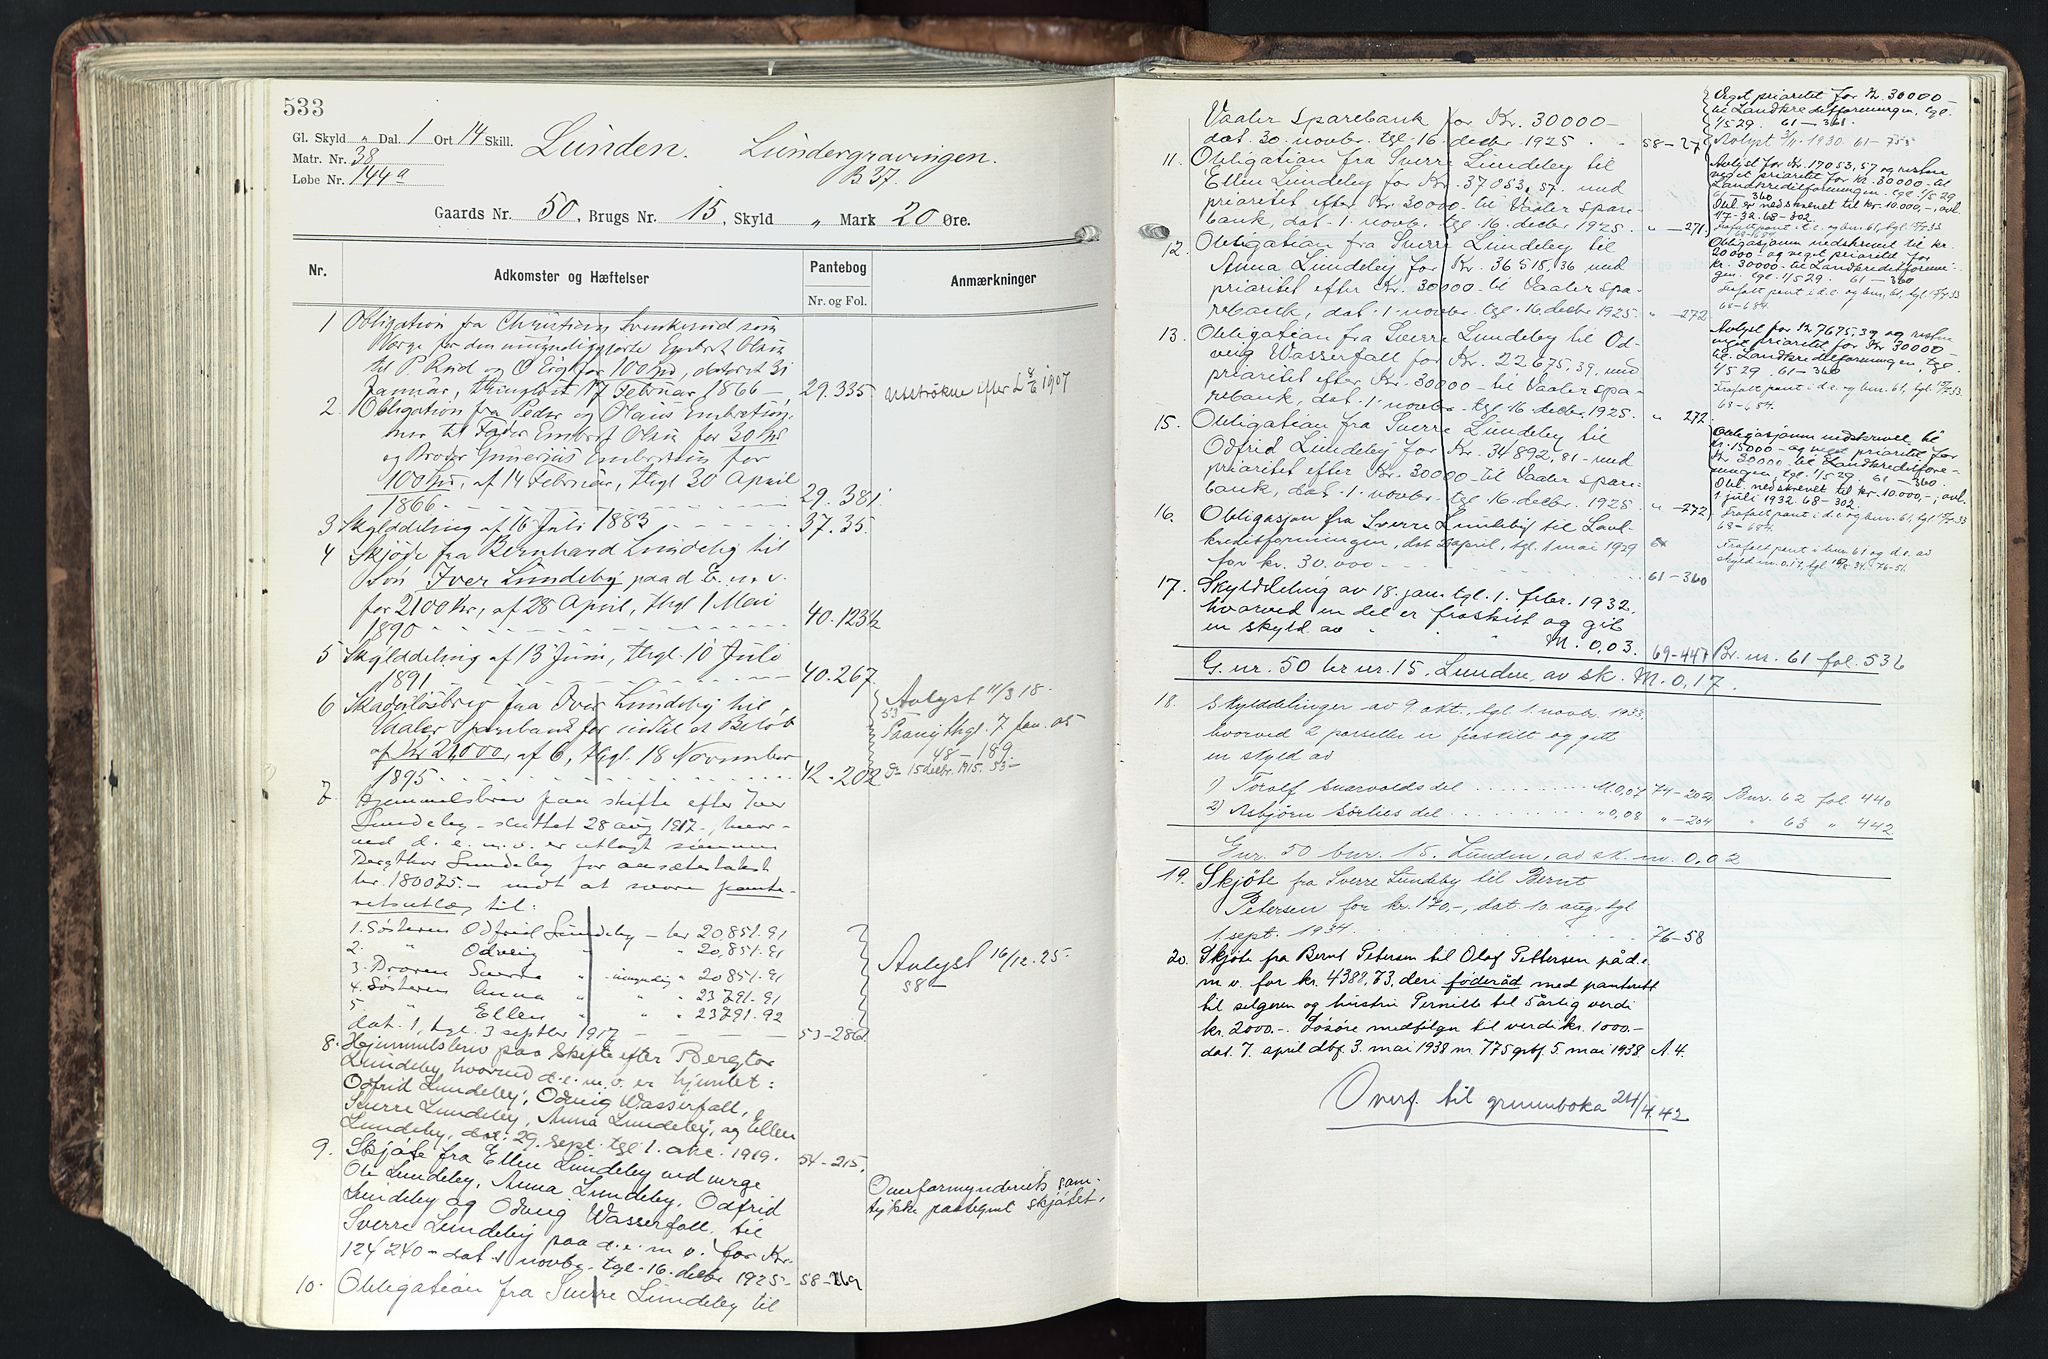 533
Gl. Skyld „ Dal. 1 Ort 14 Skill.
Matr. Nr. 38
Løbe Nr. 144a
Lunden. Lundergravingen.
B 37.
Gaards Nr. 50, Brugs Nr. 15, Skyld „ Mark 20 Øre.
Nr.
Adkomster og Hæftelser
Pantebog
Nr. og Fol.
Anmærkninger
1 Obligation fra Christian Svenkerud som
Værge for den umyndiggjorte Embret Olsen
til P. Rud og O Eig for 100 Spd, dateret 31
Januar, thinglyst 17 Februar 1866 – 29.335 Udstrøkne efter L 8/6 1907
2. Obligation fra Peder og Olaus Embretsøn-
ner til Fader Embret Olsen for 30 Spd
og Broder Gunerius Embretsen for
100 Spd, af 14 Februar, thgl 30 April
1866 29.381
3 Skylddeling af 16 Juli 1883 37.35
4 Skjøde fra Bernhard Lundeby til
Søn Iver Lundeby paa d. E. m. v.
for 2100 Kr, af 28 April, thgl 1 Mai
1890 40.123 1/2
5 Skylddeling af 13 Juni, thgl. 10 Juli
1891 40.267
6 Skadesløsbrev fra Iver Lundeby til
Vaaler Sparebank for indtil et Beløb
af Kr 21,000, af 6, thgl. 18 November
1895 42-202
Avlyst 11/3 18.
53
Paany thgl. 7 jan. 05
48-189.
do 15 decbr. 1915. 53-
7. Hjemmelsbrev paa skifte efter Iver
Lundeby – sluttet 28 aug 1917 –, hvor-
ved d. e. m. v. er utlagt sønnen
Bergthor Lundeby for aasætestakst
kr. 18007
5.– mot at svare pante-
retsutlæg til:
1. Søsteren Odfrid Lundeby – kr 20,851.91
2. " Odveig " 20,851.91
3. Broren Sverre " umyndig " 20851.91
4. Søsteren Anna " " 23791.91
5. " Ellen " " " 23791.92
dat. 1, tgl. 3 septbr 1917 – 53-286
Avlyst 16/12.25.
58-
8. Hjemmelsbrev paa Skifte efter Bergtor
Lundeby, hvorved d. e. m. v. er hjemlet:
Odfrid Lundeby, Odveig Wasserfall,
Sverre Lundeby, Anna Lundeby, og Ellen
Lundeby, dat: 29. sept. tgl 1. okt. 1919. 54-215.
9. Skjøte fra Ellen Lundeby ved verge
Ole Lundeby, Anna Lundeby, Odfrid
Lundeby og Odveig Wasserfall, til
Sverre Lundeby paa d. e. m. v. for Kr.
124240– dat 1 novbr. tgl. 16. decbr 1925– 58-269
Overformynderiets sam-
tykke paategnet skjøtet.
10. Obligation fra Sverre Lundeby til
Vaaler sparebank for Kr. 30000–
dat. 30. novbr. tgl. 16. decbr 1925 58-27
Veget prioritet for Kr. 30000–
til Landkreditforeningen, tgl.
1/5 29. 61-361
Avlyst 3/1 1930. 61-755
11. Obligation fra Sverre Lundeby til
Ellen Lundeby for Kr. 37053.57. med
prioritet efter Kr. 30000– til Vaaler spare-
bank, dat. 1. novbr. tgl. 16. decbr 1925. " -271
Avlyst for Kr. 17053,57 og resten
veget prioritet for kr. 30000– til
Landkreditforeningen. tgl. 1/5 29
61-360
Obl. er nedskrevet til kr. 10.000,–, avl.
1/7-32. 68-302.
Frafalt pant i d. e. og bnr. 61, tgl.
68-684.
12. Obligation fra Sverre Lundeby til
Anna Lundeby for Kr. 36518,36 med
prioritet efter Kr. 30000– til Vaaler spa-
rebank, dat. 1. novbr. tgl. 16. decbr 1925. " -272
Obligasjonen nedskrevet til kr.
20000– og veget prioritet for
kr. 30000– til Landkreditforeni-
gen. tgl. 1/5 29. 61-360
Frafalt pant i d. e. og bnr. 61, tgl.
68-684.
13. Obligation fra Sverre Lundeby til Od-
veig Wasserfall for Kr. 22675,39, med
prioritet efter Kr. 30000– til Vaaler spa-
rebank, dat. 1. novbr. tgl. 16. decbr 1925. " 272
Avlyst for Kr 7675,39 og resten
veget prioritet for Kr 30000–
til Landkreditforeningen, tgl.
1/5 29. 61-360
Frafalt pant i d. e. og bnr. 61, tgl.
68-684.
15. Obligation fra Sverre Lundeby til
Odfrid Lundeby for Kr. 34892,81– med
prioritet efter Kr. 30000– til Vaaler spare-
bank, dat. 1. novbr. tgl. 16. decbr 1925 " -272
Obligasjonen nedskrevet til
kr. 15000– og veget prioritet for
Kr 30000– til Landkreditfore-
ningen tgl. 1/5 29. 61-360.
Obl. nedskrevet til kr. 10.000,–, avl.
1. juli 1932. 68-302.
Frafalt pant i d. e. og bnr. 61, tgl.
68-684.
16. Obligasjon fra Sverre Lundeby til Land-
kreditforeningen, dat. april, tgl. 1 mai 1929
for kr. 30.000 61-360
Frafalt pant i bnr. 61 og d. e. av
skyld m. 0.17, tgl. 76-51.
17. Skylddeling av 18. jan. tgl. 1. febr. 1932,
hvorved en del er fraskilt og git
en skyld av
M. 0,03. 69-447 Br. nr. 61 fol. 536
G. nr. 50 br. nr. 15. Lunden, av sk. M. 0,17.
18. Skylddelinger av 9. okt., tgl. 1. novbr. 1933,
hvorved 2 parseller er fraskilt og gitt
en skyld av
1) Torolf Snarvolds del M. 0,07 74-202 Bnr. 62 fol. 440
2) Asbjørn Sørlies del " 0,08 " -204 " 63 " 442
Gnr. 50 bnr. 15. Lunden, av sk. m. 0,02
19. Skjøte fra Sverre Lundeby til Bernt
Petersen for kr. 170,–, dat. 10. aug. tgl
1. sept. 1934 76-58
20. Skjøte fra Bernt Petersen til Olof Pettersen på d. e.
m. v. for kr. 4388,73, deri føderåd med panterett
til selgeren og hustru Pernille til 5 årlig verdi
kr. 2000.–. Løsøre medfølger til verdi kr. 1000.–
dat. 7. april dbf. 3. mai 1938 nr. 775 gbf 5. mai 1938 A. 4.
Overf. til grunnboka 24/4.42